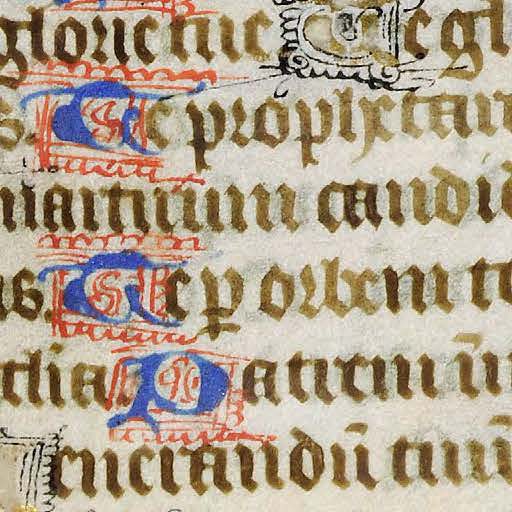 glorie tue Te gl
s. Te prophetar
martirum candid
us. Te p orbem te
clia Patrem ī
enerandū tuū